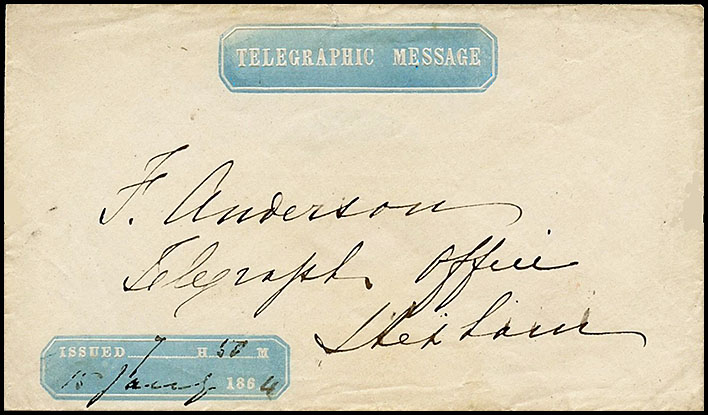 TELEGRAPHIC MESSAGE
F. Anderson
Telegraph Office
ISSUED 7 H 50 M
15 Jany 1864